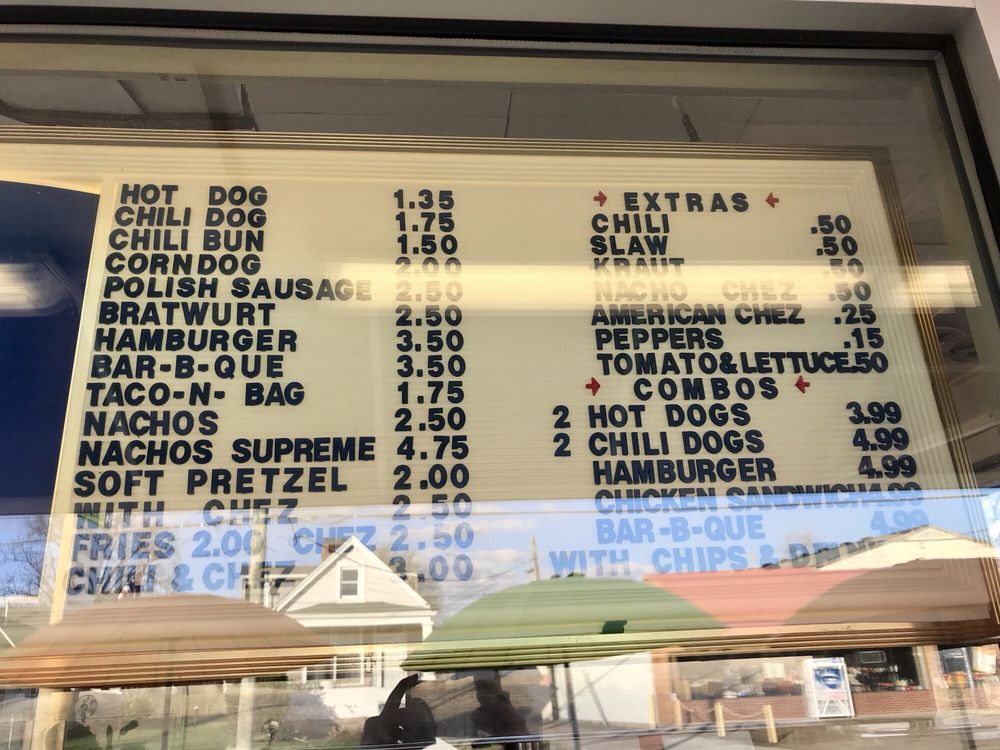 HOT DOG 1.35
CHILI DOG 1.75
CHILI BUN 1.50
CORNDOG 2.00
POLISH SAUSAGE 2.50
BRATWURT 2.50
HAMBURGER 3.50
BAR-B-QUE 3.50
TACO-N- BAG 1.75
NACHOS 2.50
NACHOS SUPREME 4.75
SOFT PRETZEL 2.00
WITH CHEZ 2.50
FRIES 2.00 CHEZ 2.50
CHILI & CHEZ 3.00
EXTRAS
CHILI .50
SLAW .50
KRAUT .50
NACHO CHEZ .50
AMERICAN CHEZ .25
PEPPERS .15
TOMATO&LETTUCE.50
COMBOS
2 HOT DOGS 3.99
2 CHILI DOGS 4.99
HAMBURGER 4.99
CHICKEN SANDWICH4.99
BAR-B-QUE 4.99
WITH CHIPS &